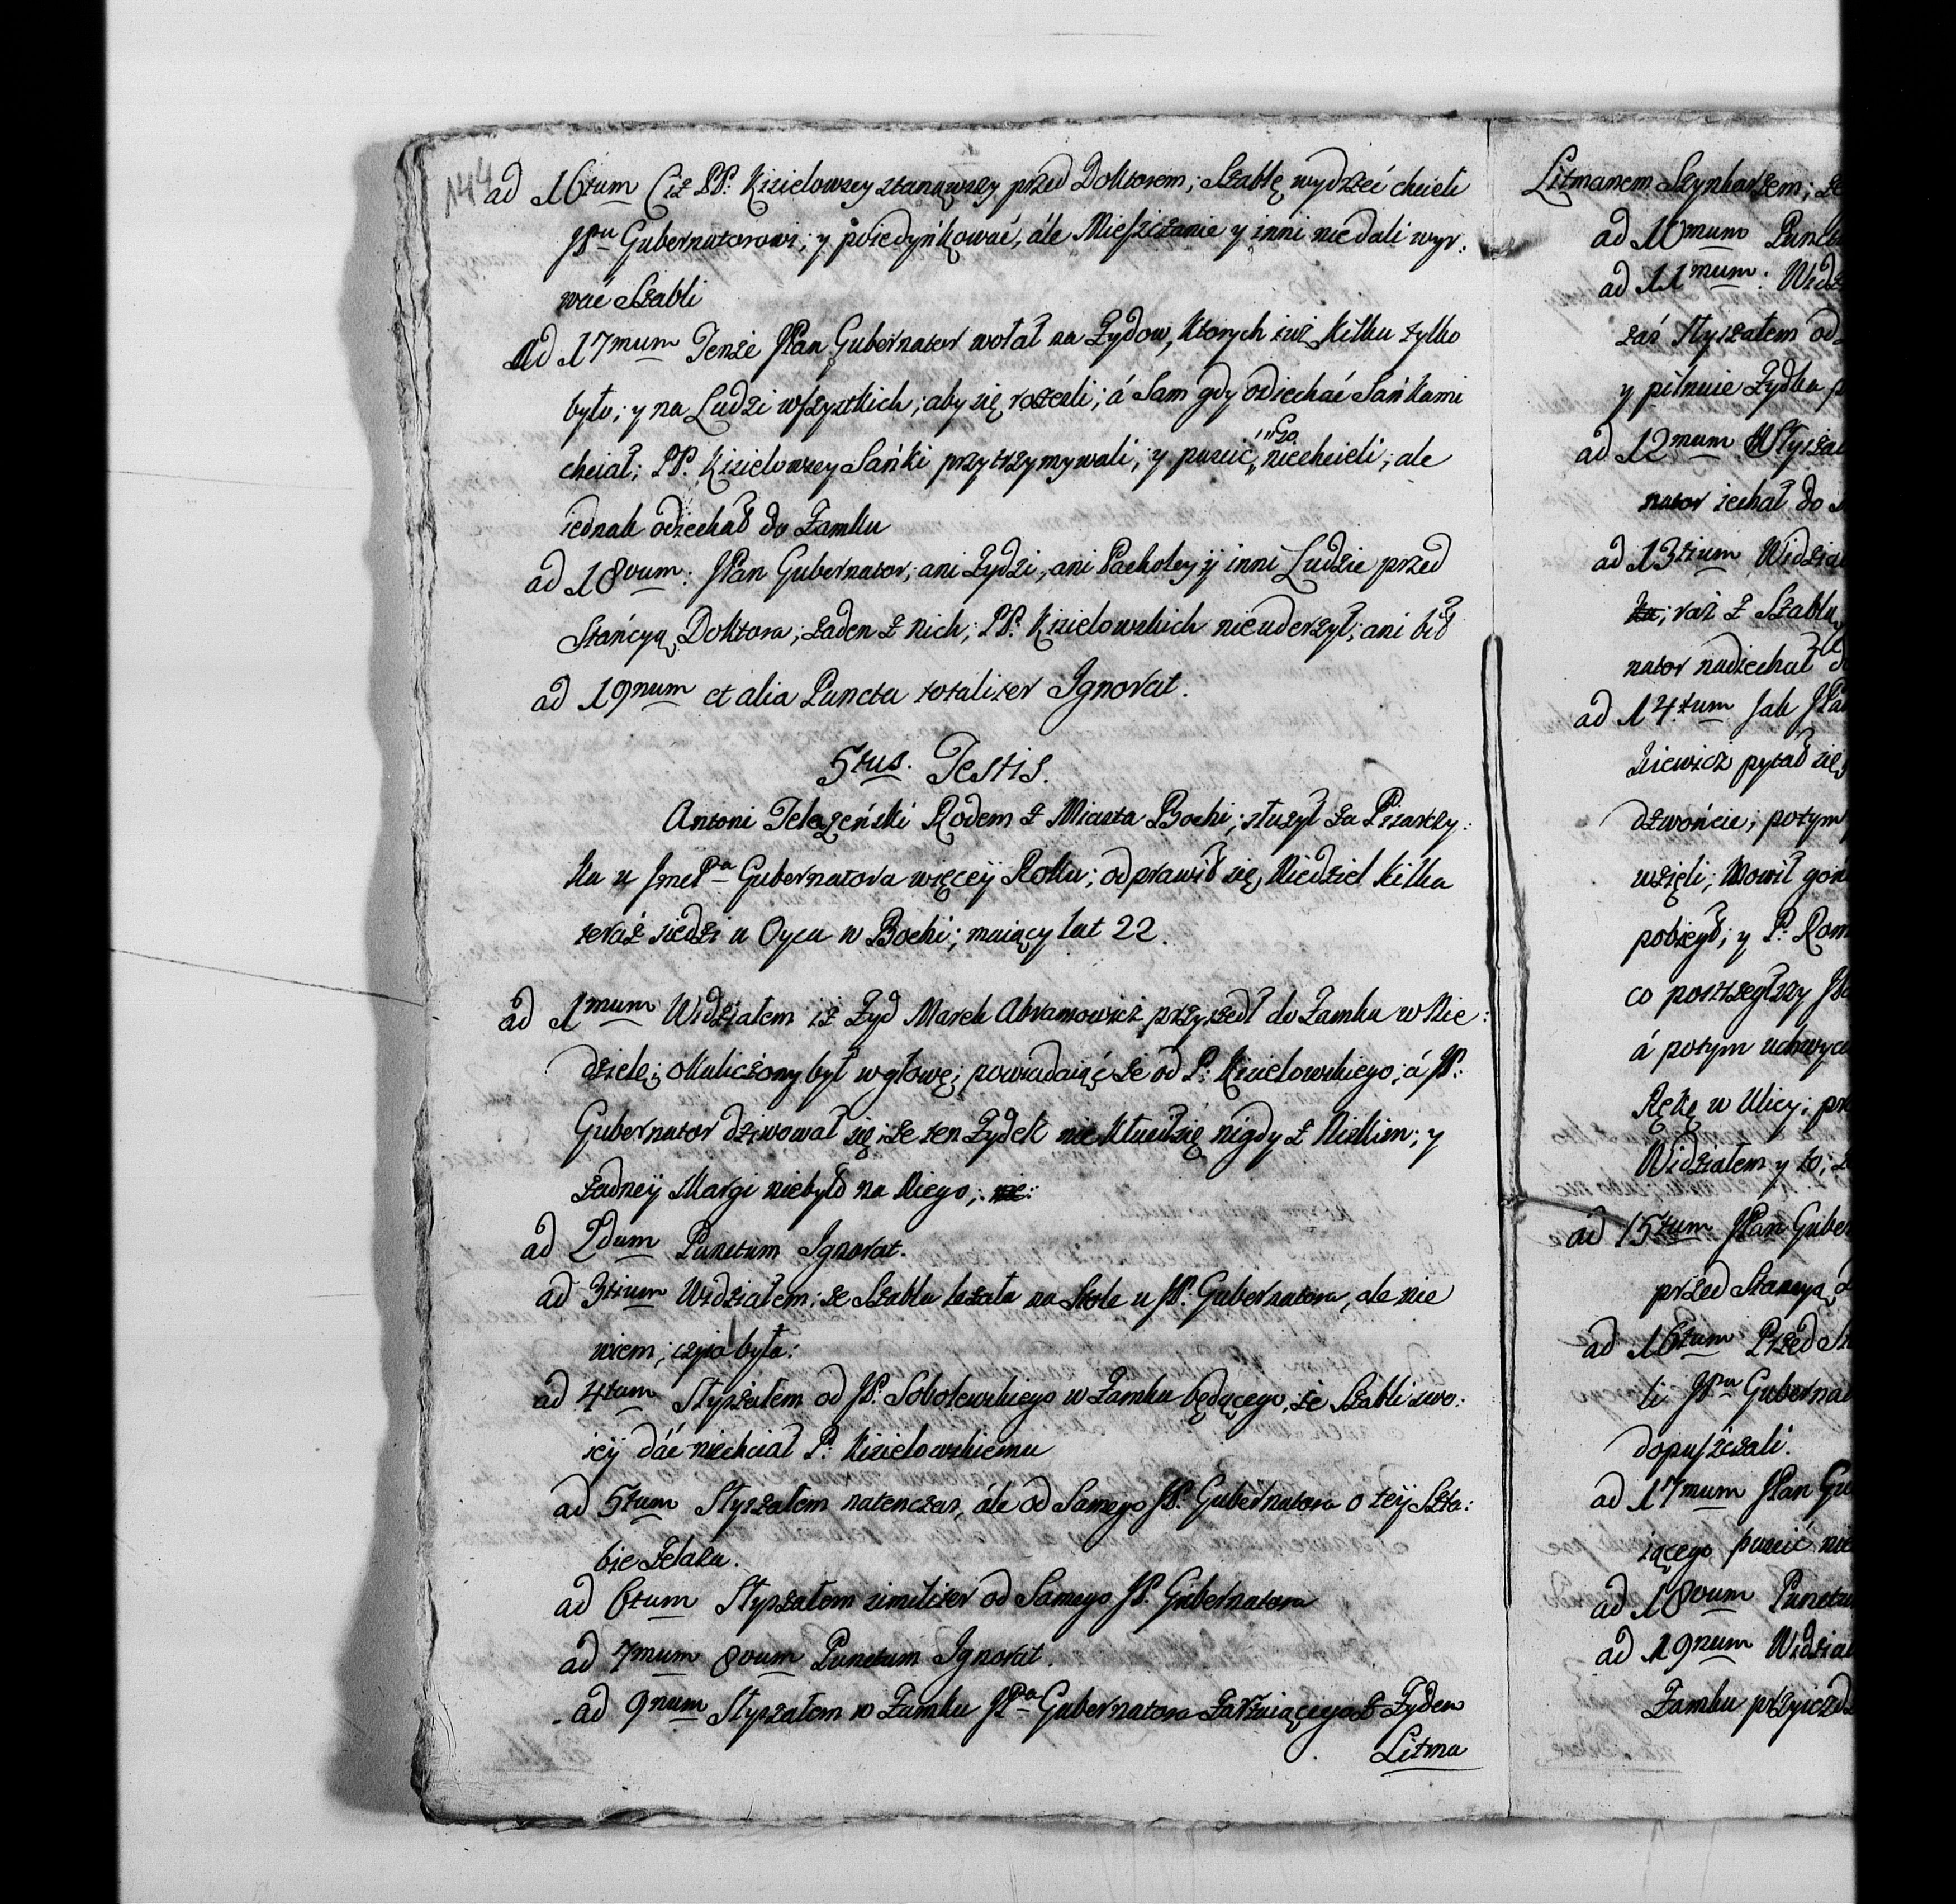 144
ad 16tum Ciż PP: Kisielowscy stanąwszy przed Doktorem; Szablę wydrzeć chcieli
JPu Gubernatorowi; y poiedyńkować, ále Mieszczanie y inni niedali wyr:
wać Szabli
Ad 17mum Tenże JPan Gubernator wołał na Żydow, Ktorych iuż Kilku tylko
było; y na Ludzi wszystkich; aby się roszeli; á Sam gdy odiechać Sańkami
chciał; PP: Kisielowscy Sańki przytrzymywali; y puscić Go niechcieli; ale
iednak odiechał do Zamku
ad 18vum: JPan Gubernator; ani Żydzi, ani Pachołcy ÿ inni Ludzie przed
Stańcyą Doktora; żaden z nich; PP: Kisielowskich nieuderzył; ani bił
ad 19num et alia Puncta totaliter Ignorat.
5tus. Testis.
Antoni Telezeński Rodem z Miasta Bochi; służył za Pisarczy:
ka u JmcPa Gubernatora więceÿ Roku; odprawił się Niedziel Kilka
teráz siedzi u Oyca w Bochi; maiący lat 22.
ad 1mum Widziałem iż Żyd Marek Abramowicz przyszedł do Zamku w Nie:
dzielę; okaliczony był w głowę; powiadaiąć że od P: Kisielowskiego; á JP:
Gubernator dziwował się; że ten Żydek nie kłuci się nigdy z Nikim; y
żadneÿ skargi niebyło na Niego;
ad 2dum Punctum Ignorat.
ad 3tium Widziałem; że Szabla leżała na Stole u JP: Gubernatora, ale nie
wiem; czyia była:
ad 4tum Słyszałem od JP: Sobolewskiego w Zamku będącego, że Szabli swo:
ieÿ dáć niechciał P: Kisielowskiemu
ad 5tum Słyszałem natenczas, ále od Samego JP: Gubernatora o teÿ Szta:
bie żelaza.
ad 6tum Słyszałem similiter od Samego JP: Gubernatora
ad 7mum 8vum Punctum Ignorat.
ad 9num Słyszałem w Zamku JPa Gubernatora żartuiącego z Żydem
Litma
Litmanem Szynkarzem;
ad 10mum
ad 11mum.
zaś słyszałem od
y pilnuie Żydka
ad 12mum
nator iechał do
ad 13tium
raz z Szablą
nator nadiechał
ad 14tum Jak
pytał się
dzwońcie; potym
wzięli; Mowił
pobiegł; y P:
co postrzegłszy
á potym
Rękę w Ulicy;
Widziałem y to;
ad 15tum JPan
przed Stancyą
ad 16tum Przed
li JPu
dopuszczali.
ad 17mum JPan
iącego puscić
ad 18vum
ad 19num
Zamku